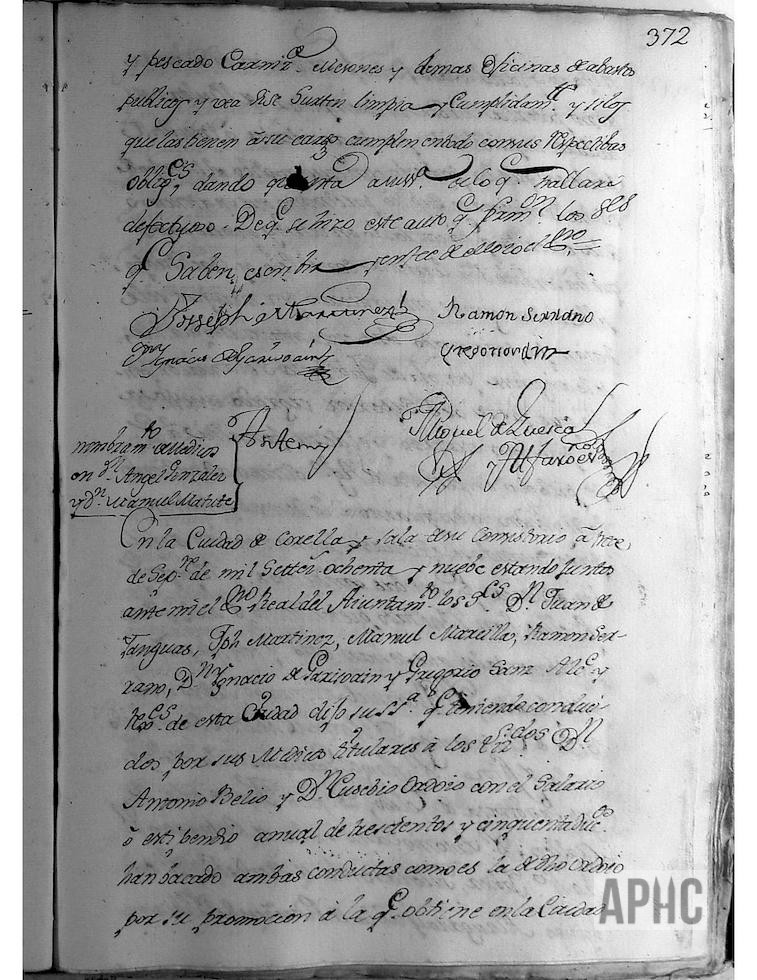 372
y pescado Carniª. Mesones y demas oficinas de abastos
publicos y vea si se surten limpia y Cumplidamte. y si los
que las tienen â su cargo cumplimentado con sus respectibas
obliges, dando quenta a su Sª. de lo q. hallare
defectuoso. De q. se hizo este auto q. firmon los Sres
q. Saben escribir
Joseph Martinez Ramon Serrano
Dn Ygnacio de Garisoain Gregorio
Antemi Miguel de Luesia
y Alfaro
nombramto. de Medicos
en Dn Angel Gonzalez
y Dn. Manuel Matute
En la Ciudad de Corella y sala de su Consistorio â trece
de Sepre. de mil Settes. ochenta y nuebe estando juntos
ante mi el Esno Real del Aiuntamto. los Sres. Dn. Juan de
Yanguas, Jph Martinez, Manuel Marcilla, Ramon Ser-
rano, Dn Ygnacio de Garisoain y Gregorio Sanz Alce. y
rexres. de esta Ciudad dijo su Sª. q. teniendo conduci-
dos por sus Medicos titulares â los Dn
Antonio Belio y Dn. Eusebio Ordoio con el Salario
ô estipendio anual de trescientos y cinquenta ducs.
han bacado ambas conductas como es la de dho Ordoio
por su promocion â la q. obtiene en la Ciudad
APHC